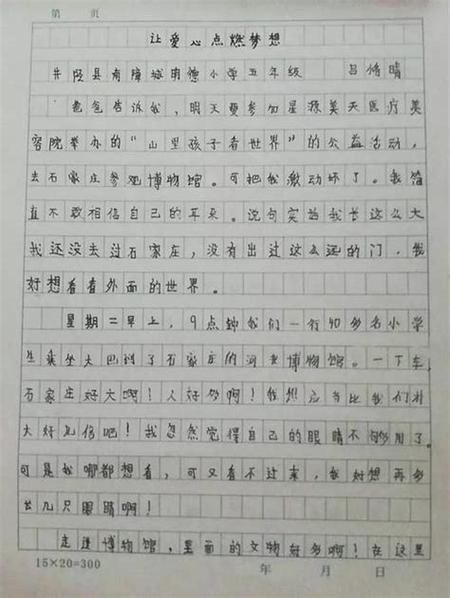 第 页
让爱心点燃梦想
井陉县南障城明德小学五年级 吕偌晴
爸爸告诉我,明天要参加星源美天医疗美
容院举办的“山里孩子看世界”的公益活动,
去石家庄参观博物馆。可把我激动坏了。我简
直不敢相信自己的耳朵。说句实话我长这么大
我还没去过石家庄,没有出过这么远的门,我
好想看看外面的世界。
星期二早上,9点钟我们一行40多名小学
生乘坐大巴到了石家庄的河北博物馆。一下车,
石家庄好大啊!人好多啊!我想应当比我们村
大好几倍吧!我忽然觉得自己的眼睛不够用了。
可是我哪都想看,可又看不过来,我好想再多
出几只眼睛啊!
走进博物馆,里面的文物好多啊!在这里
15×20=300 年 月 日